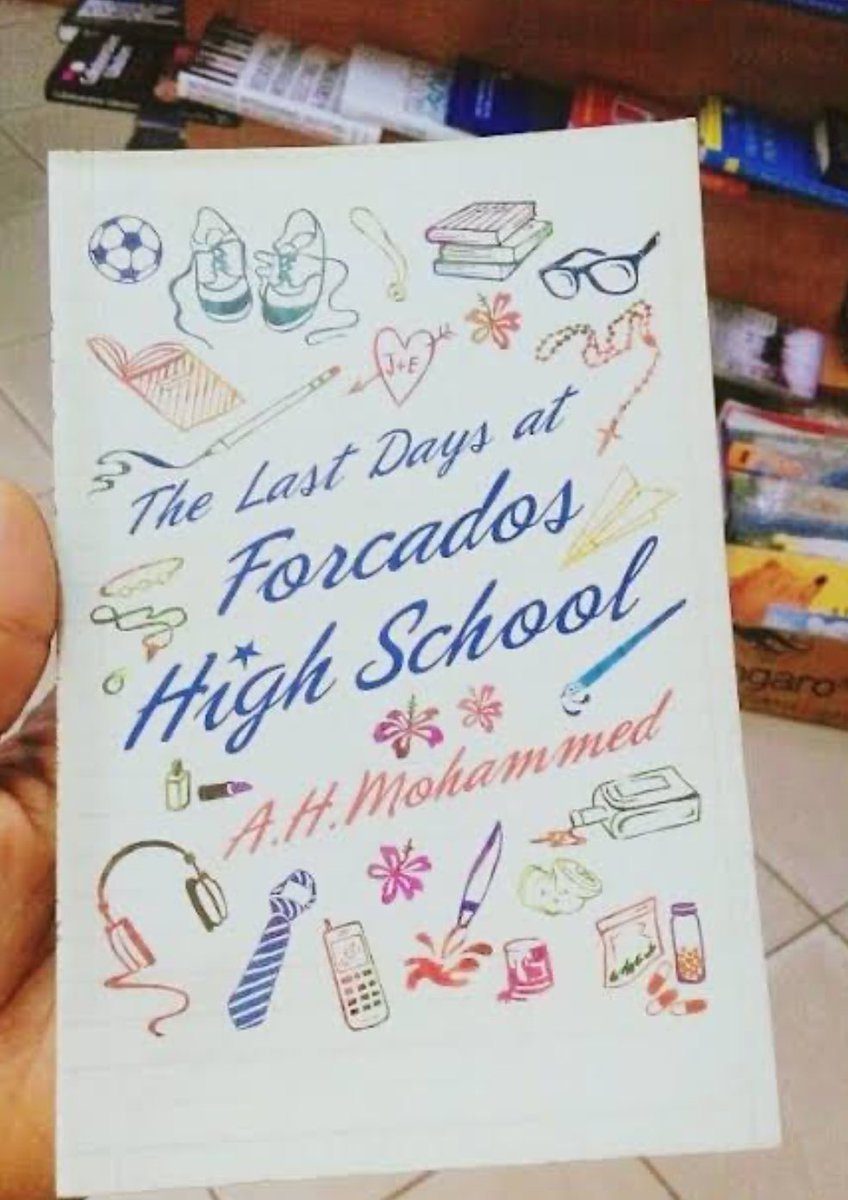 J+E
The Last Days at
Forcados
High School
A.H.Mohammed
ngaro